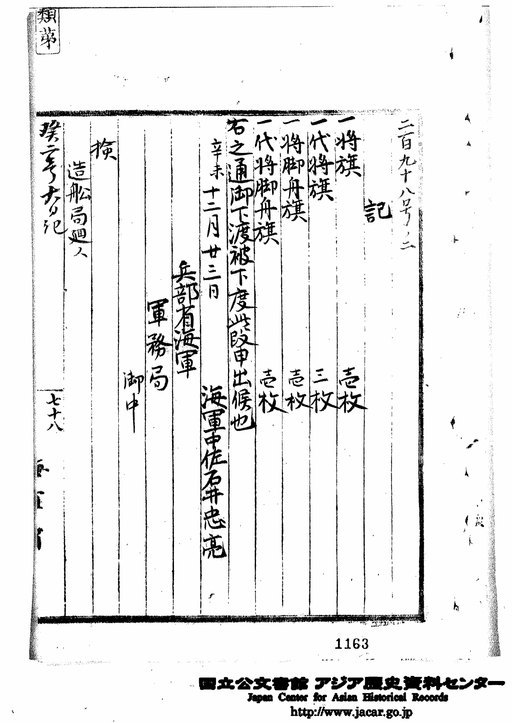 類第
二百九十八号ノ二
記
一将旗 壱枚
一代将旗 三枚
一将脚舟旗 壱枚
一代将脚舟旗 壱枚
右之通御下渡被下度此段申出候也
辛未十二月廿三日 海軍中佐石井忠亮
兵部省海軍
軍務局
御中
検
造船局廻入
癸二号大日記
七十八
海軍省
1163
国立公文書館 アジア歴史資料センター
Japan Center for Asian Historical Records
http://www.jacar.go.jp